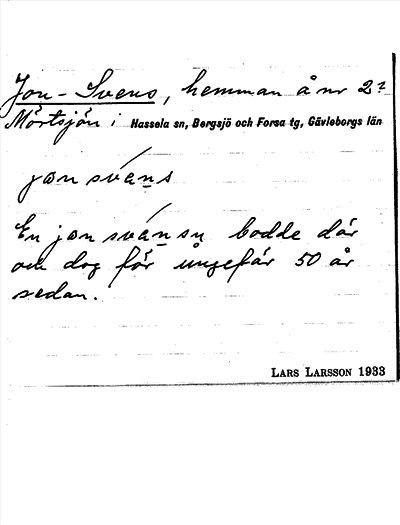 Jon-Svens, hemman å nr 2 i
Mörtsjön i Hassela sn, Bergsjö och Forsa tg, Gävleborgs län
jon svéns
En jon svénsn bodde där
och dog för ungefär 50 år
sedan.
LARS LARSSON 1933